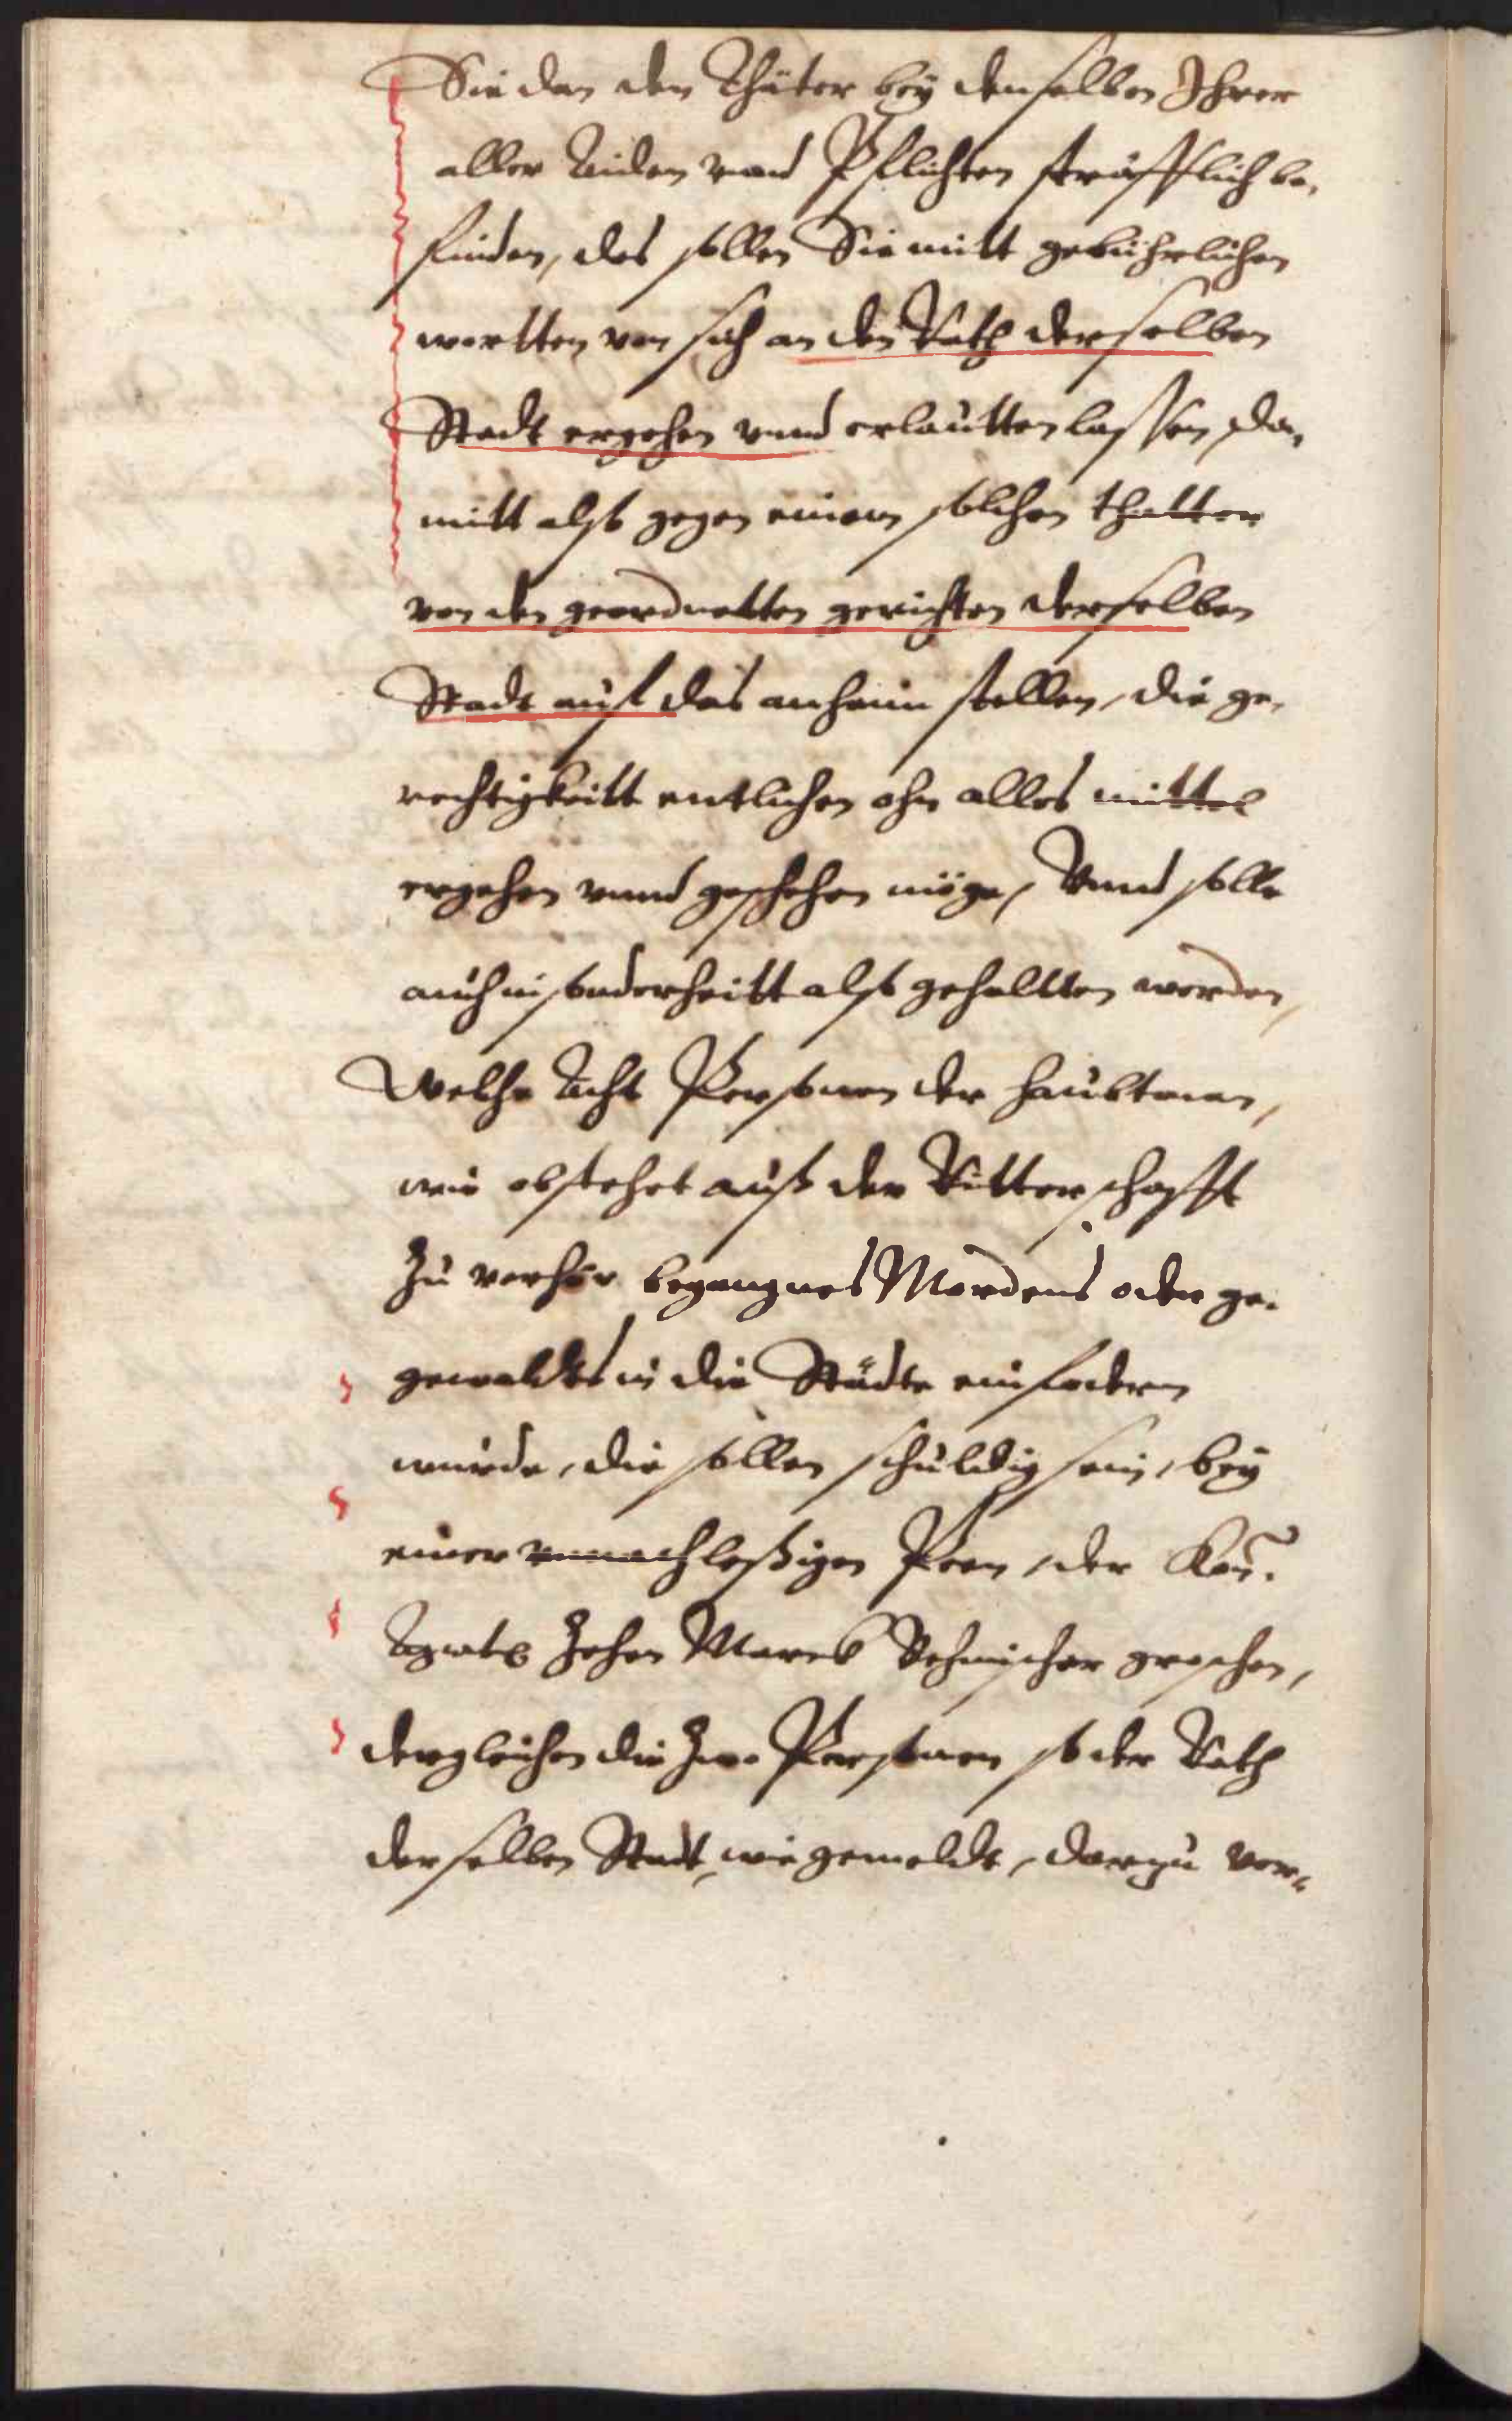 Sie dan den Thäter bey denselben Ihrer
aller Aiden vnnd Pflichten sträfflich be,
finden, des sollen Sie mitt gebührlichen
wortten von sich an den Rath derselben
Stadt ergehen vnnd erlautten lassen, da,
mitt also gegen einem solchen thatter
von den geordnetten gerichten derselben
Stadt auf das anheim stellen, die ge,
rechtigkeitt entlichen ohn alles mittel
ergehen vnnd geschehen möge, Vnnd solle
auch in sonderheitt also gehaltten werden,
Welche Acht Personen der haubtman,
wie obstehet auß der Ritterschafft
Zu verhör begangnes Mordens oder ge,
gewaldes in die Städte einfodern
würde, die sollen schuldig sein, bey
einer vnnachleßigen Peen, der Kön:
Zehen Marck Behmischer groschen,
dergleichen die Zwo Personen so der Rath
derselben Stadt, wie gemeldt, darzu ver,